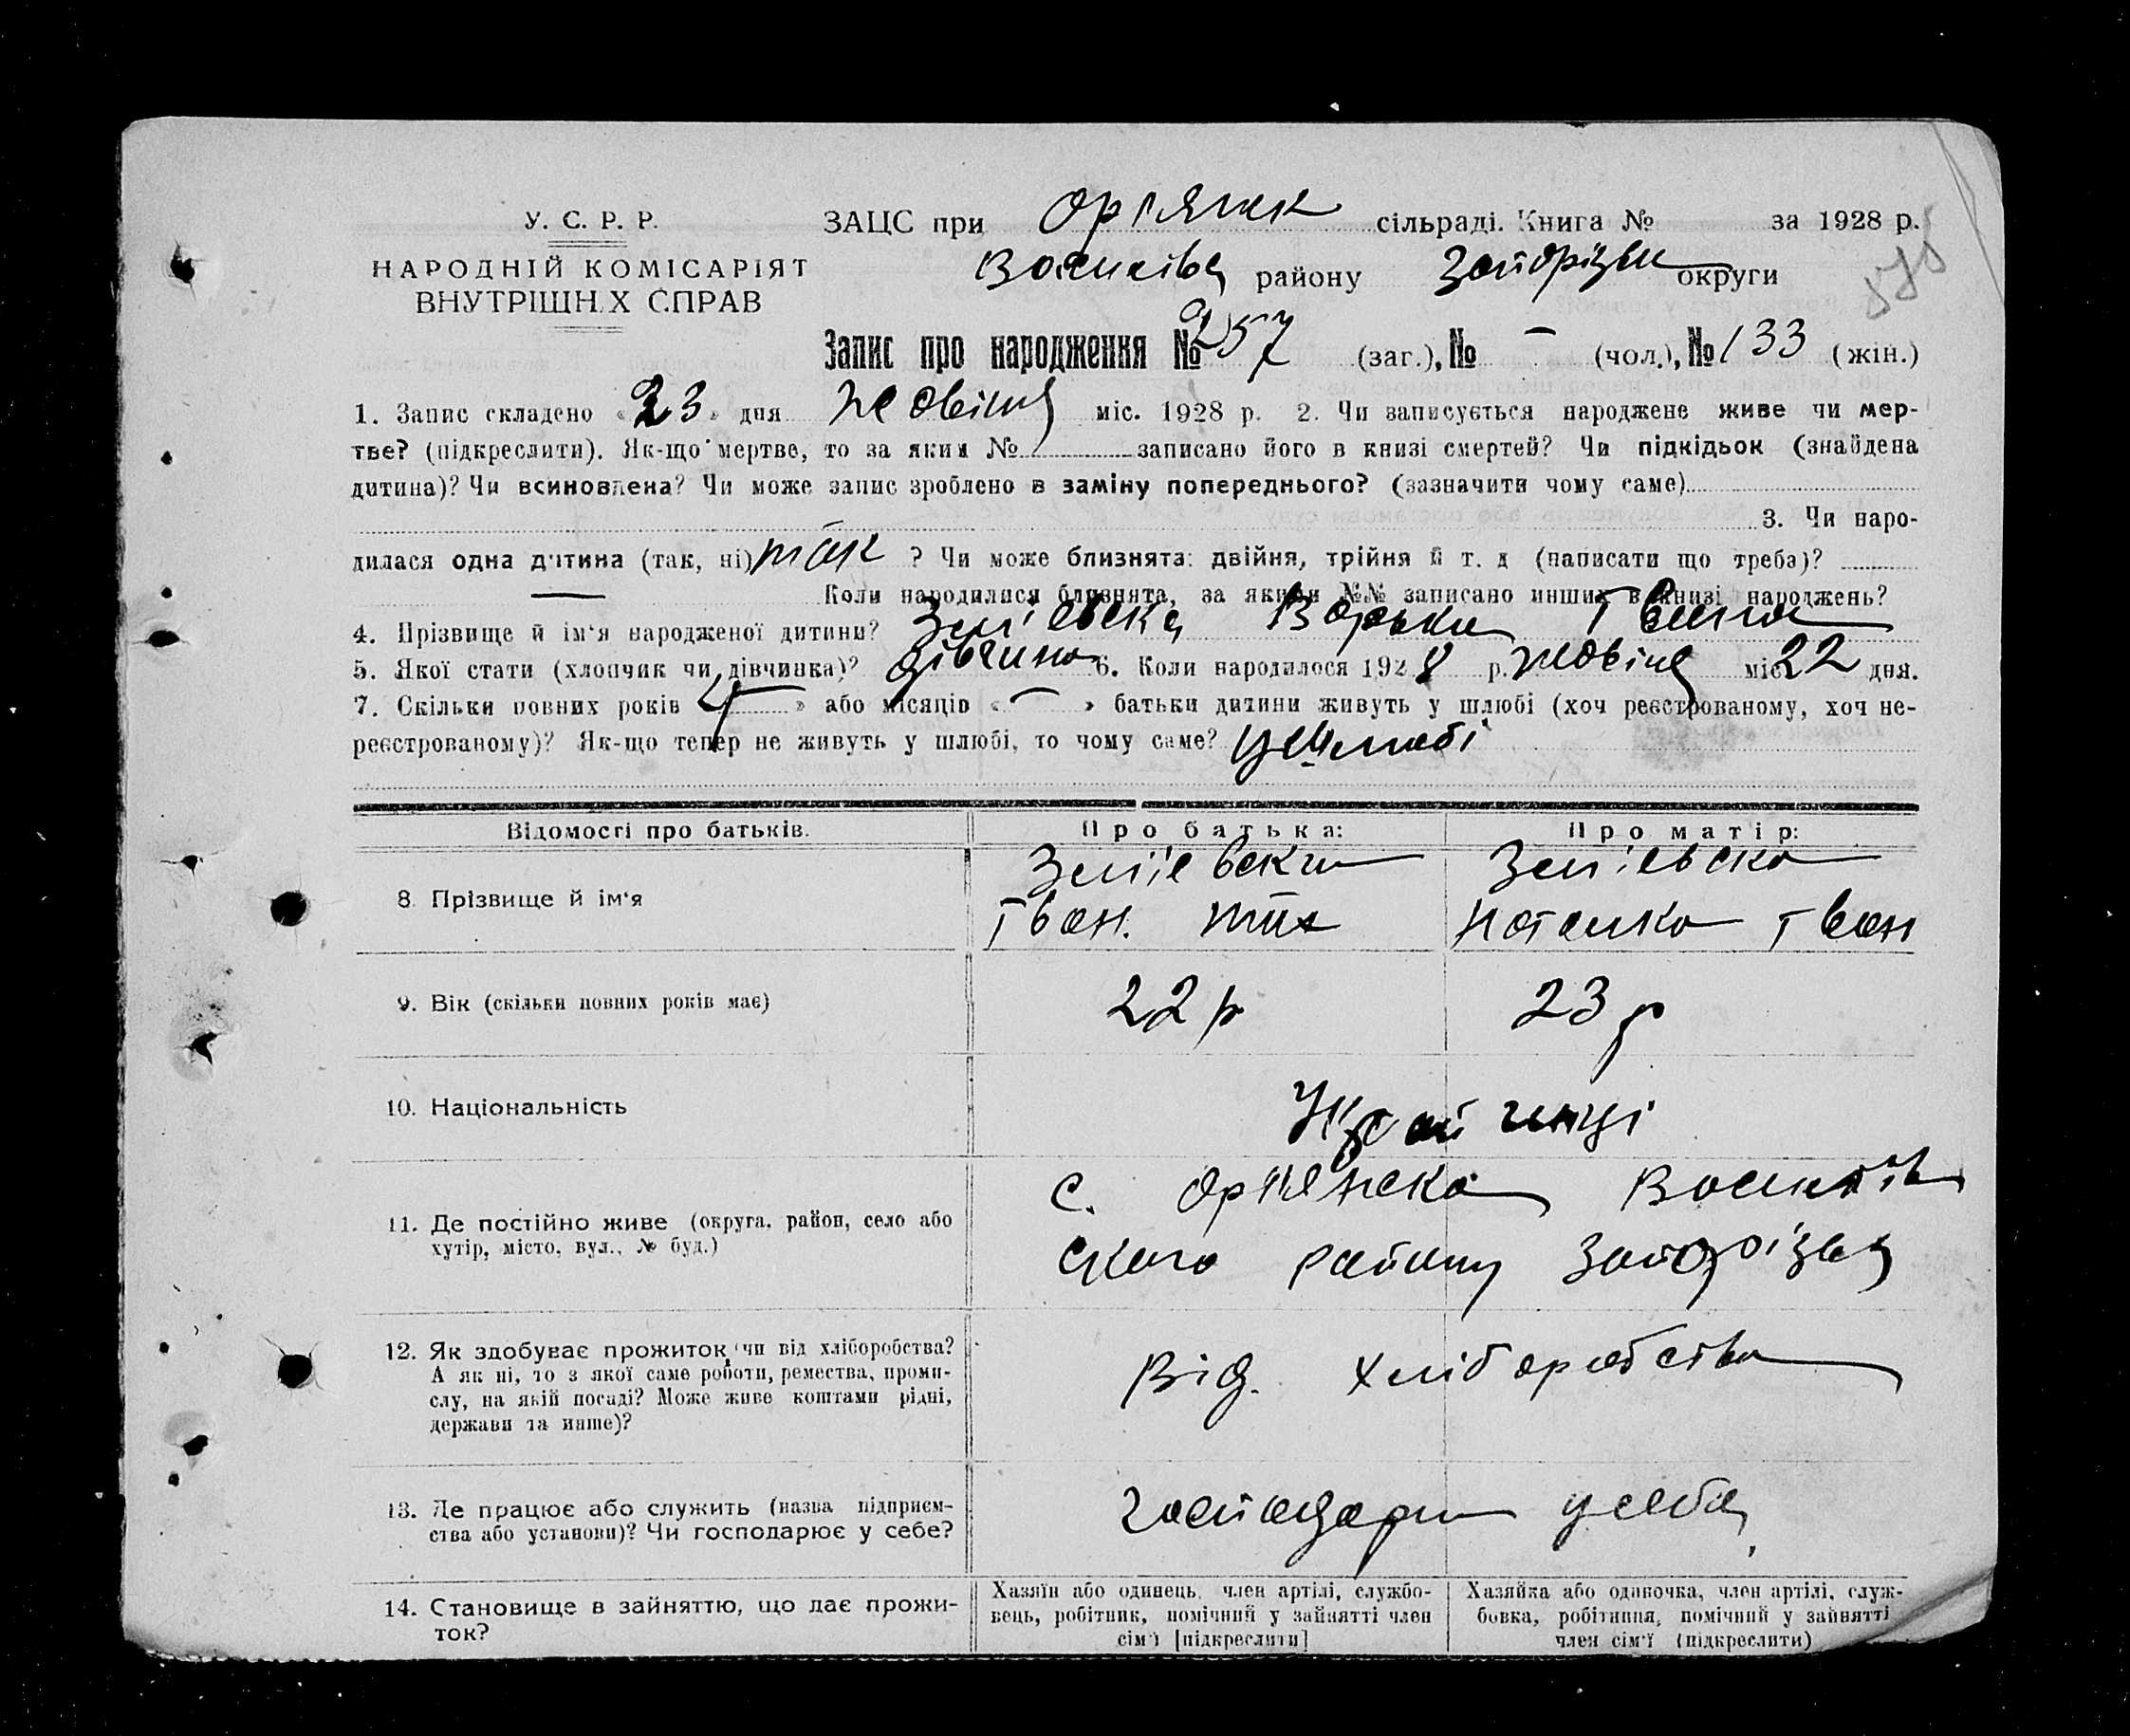 У. С. Р. Р.
НАРОДНІЙ КОМІСАРІЯТ
ВНУТРІШН.Х СПРАВ
ЗАЦС при Орлянск сільраді. Книга № за 1928 р.
району Запорізьк округи
Запис про народження № 257 (заг.), № — (чол.), № 133 (жін.)
1. Запис складено «23» дня жовтня міс. 1928 р. 2. Чи записується народжене живе чи мер-
тве? (підкреслити). Як-що мертве, то за яким № записано його в книзі смертей? Чи підкідьок (знайдена
дитина)? Чи всиновлена? Чи може запис зроблено в заміну попереднього? (зазначити чому саме)
3. Чи наро-
дилася одна дитина (так, ні) так ? Чи може близнята: двійня, трійня й т. д (написати що треба)?
— Коли народилися близнята, за якими №№ записано инших в книзі народжень?
4. Прізвище й ім'я народженої дитини? Змієвска Варька Івана
5. Якої стати (хлопчик чи дівчинка)? дівчина 6. Коли народилося 1928 р. жовтня міс 22 дня.
7. Скільки повних років 4 » або місяців « — » батьки дитини живуть у шлюбі (хоч реєстрованому, хоч не-
реєстрованому)? Як-що тепер не живуть у шлюбі, то чому саме? у шлюбі
Відомості про батьків. Про батька: Про матір:
8. Прізвище й ім'я Змієвски Змієвска
Іван. Наталка Іван
9. Вік (скільки повних років має) 22 р 23 р
10. Національність Українці
с. Орлянска
11. Де постійно живе (округа, район, село або
хутір, місто, вул., № буд.) ского району Запорізьк
12. Як здобуває прожиток, чи від хліборобства?
А як ні, то з якої саме роботи, ремества, проми-
слу, на якій посаді? Може живе коштами рідні,
держави та инше)? Від. хліборобства
13. Де працює або служить (назва підприєм-
ства або установи)? Чи господарює у себе? господари у себе
14. Становище в зайняттю, що дає прожи-
ток?
Хазяїн або одинець, член артілі, службо-
вець, робітник, помічний у зайнятті член
сім'ї [підкреслити]
Хазяйка або одиночка, член артілі, служ-
бовка, робітниця, помічний у зайнятті
член сім'ї (підкреслити)